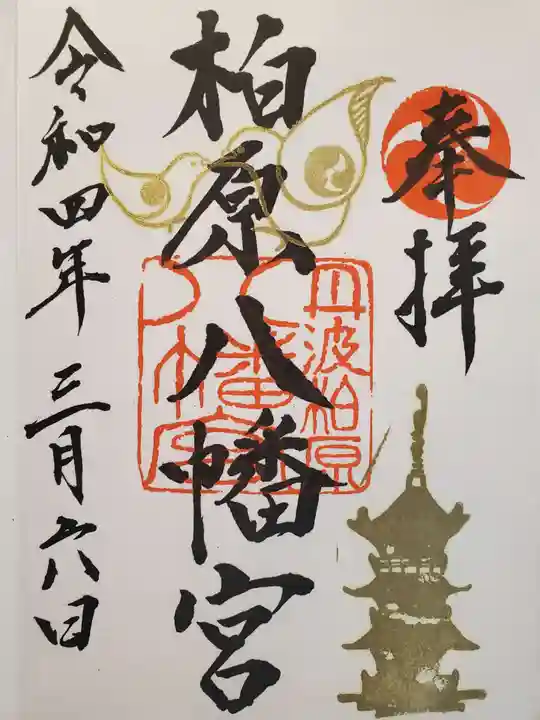 奉拝
柏原八幡宮
丹波柏原
八幡宮
令和四年三月六日